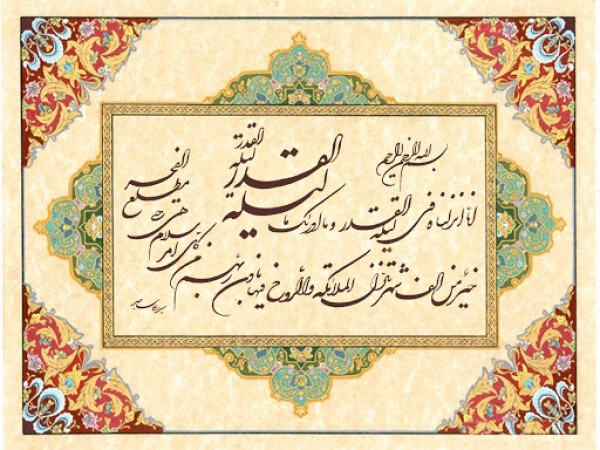 بسم الله الرحمن الرحیم
انا انزلناه فی لیلة القدر و ما ادرئک ما
لیلة القدر لیلة القدر
خیر من الف شهر تنزل الملائکة والروح فیها باذن ربهم من کل امر
سلام هی حتی مطلع الفجر